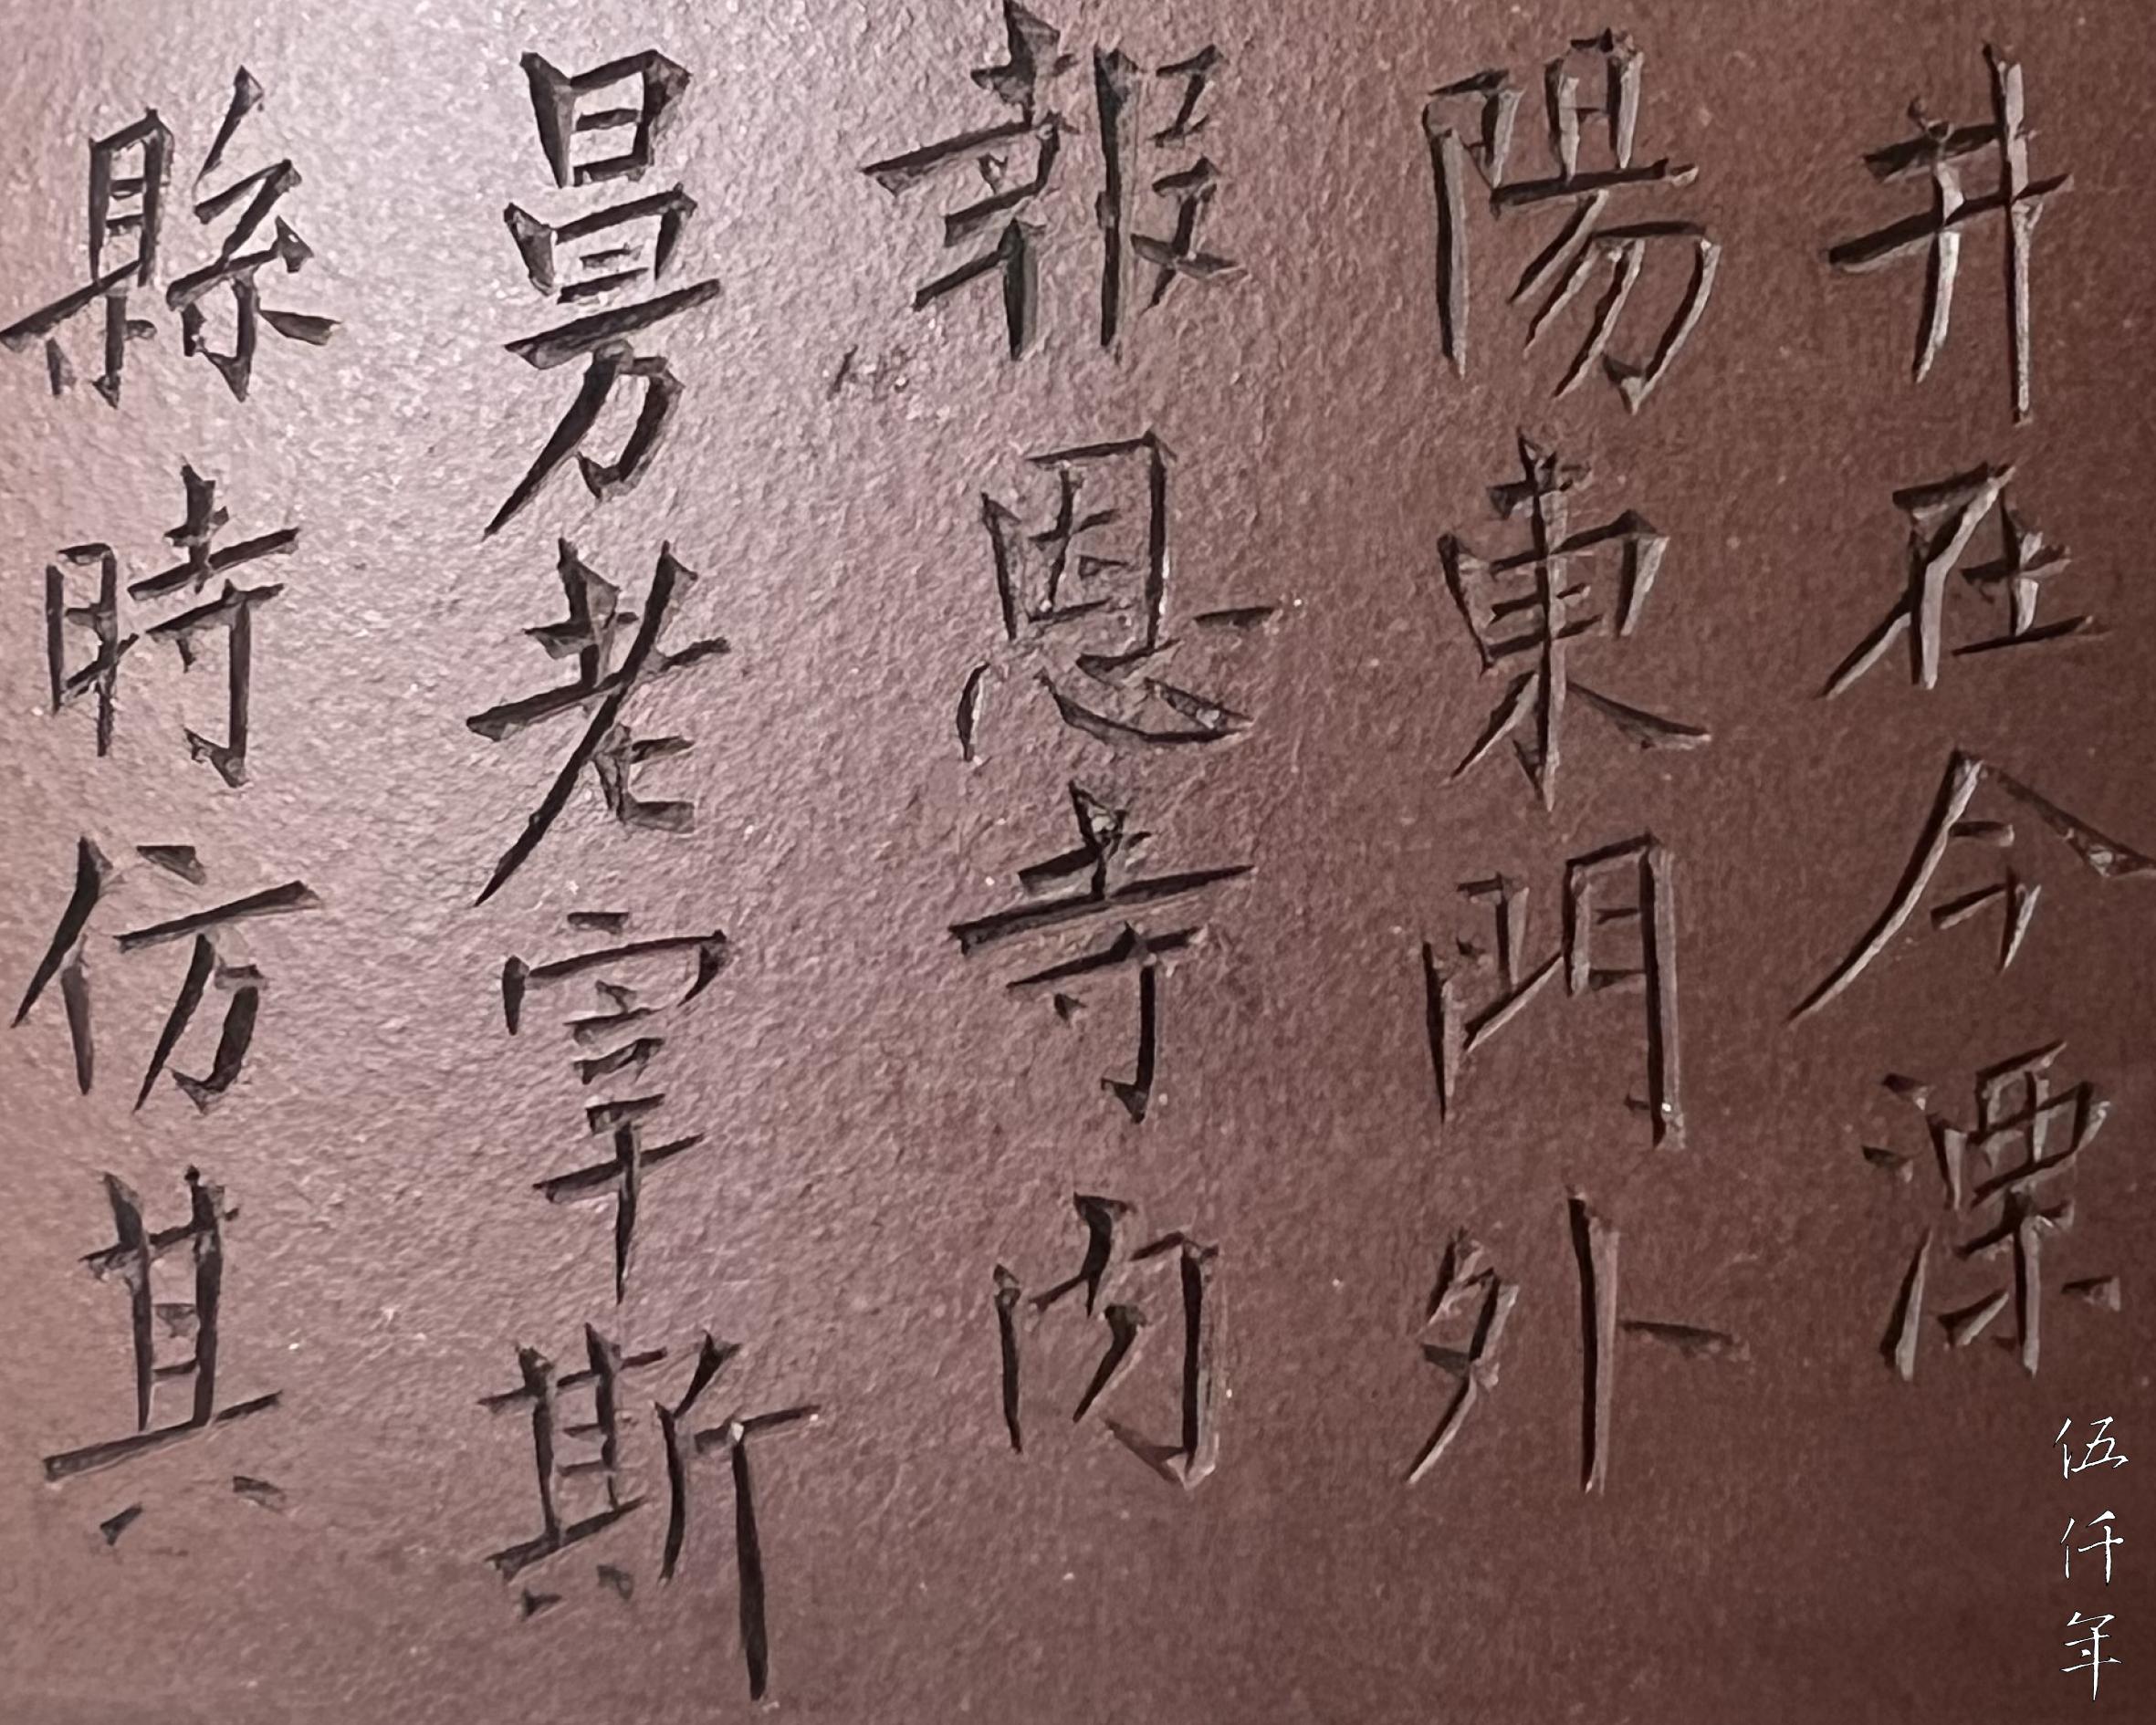 井在今溧
陽東門外
報恩寺内
曼老宰斯
縣時仿其
伍仟年